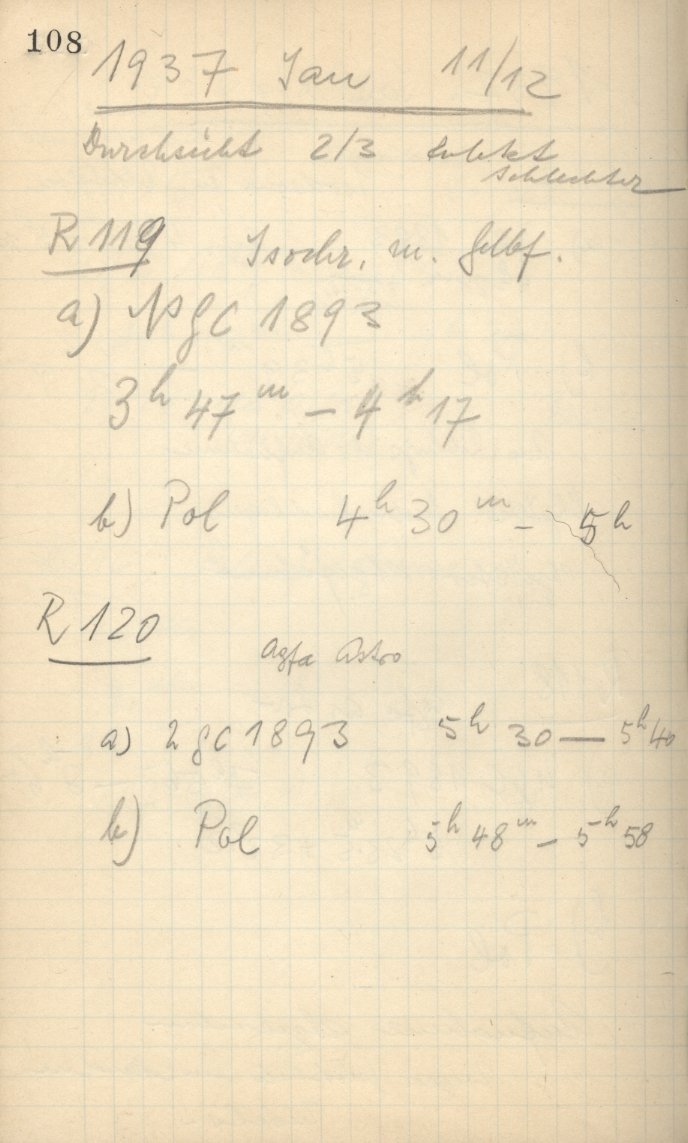 108
1937 Jan 11/12
Durchsicht 2/3 zuletzt
schlechter
R 119 Isochr. m. Gelbf.
a) NGC 1893
3h 47m – 4h 17
b) Pol 4h 30m – 5h
R 120
Agfa Astro
a) NGC 1893 5h 30 — 5h 40
b) Pol 5h 48m – 5h 58